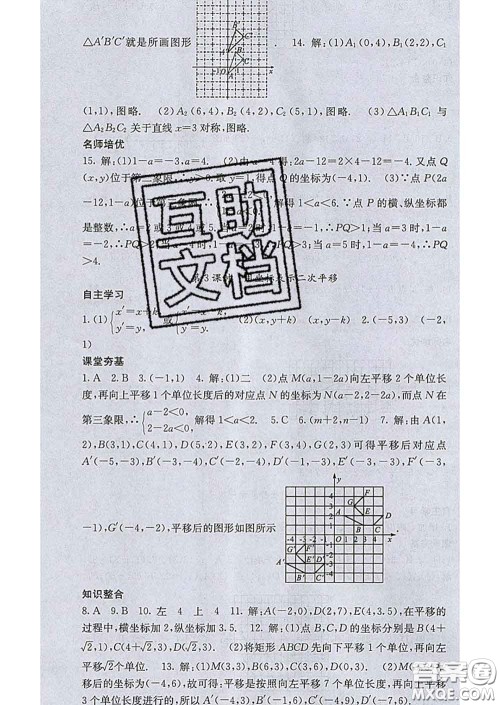 △A′B′C′就是所画图形 . 14. 解:(1)A₁(0,4),B₁(2,2),C₁
(1,1),图略. (2)A₂(6,4),B₂(4,2),C₂(5,1),图略. (3)△A₁B₁C₁ 与
△A₂B₂C₂ 关于直线 x=3 对称,图略.
名师培优
15. 解:(1)1-a=-3,a=4. (2)由 a=4 得:2a-12=2×4-12=-4. 又点 Q
(x,y)位于第二象限, y>0. 取 y=1,得点 Q 的坐标为(-4,1). (3)∵点 P(2a
-12,1-a)位于第三象限, 解得 1<a<6. ∵点 P 的横、纵坐标都
是整数,∴a=2 或 3 或 4 或 5. 当 a=2 时, ∴PQ>1;当 a=3 时,1-
a=-2,∴PQ>2;当 a=4 时,1-a=-3,∴PQ>3;当 a=5 时,1-a=-4,∴PQ
>4.
第3课时 坐标表示二次平移
自主学习
1. (1){x′=x+h, y′=y, 或{ (2)(x,y+k) (x,y-k) 2. (-5,3) (-2,
1)
课堂夯基
1. A 2. B 3. (-1,1) 4. 解:(1)二 (2)点 M(a,1-2a)向左平移 2 个单位长
度,再向上平移 1 个单位长度后的对应点 N 的坐标为(a-2,2-2a),而点 N 在
第三象限,∴{a-2<0, 2-2a<0, 解得 1<a<2. 5. C 6. (m+2,n-1) 7. 解:由 A(1,
2),B(3,1),C(4,1),D(5,2),E(3,2),F(3,4),G(2,3)可得平移后对应点
A′(-5,-2),B′(-3,-3),C′(-2,-3),D′(-1,-2),E′(-3,-2),F′(-3,
-1),G′(-4,-2),平移后的图形如图所示 .
知识整合
8. A 9. B 10. 左 4 上 4 11. 解:A(-2,0),D(2,7),E(4,3.5),在平移的
过程中,横坐标加 2,纵坐标加 3.5. 12. 解:(1)点 B、点 C、点 D 的坐标分别是 B(4+
√2,1),C(4+√2,3),D(4,3). (2)将矩形 ABCD 先向下平移 1 个单位,再向左
平移√2个单位. 13. 解:(1)M(3,3),B(1,-1),C(4,2),D(2,0). (2)M
移后的坐标为(-4,6),故可得:平移是按照向左平移 7 个单位长度,再向上平移
3 个单位长度进行的,所以 A′(-4,-1),B′(-6,2),C′(-4,9),D′(-7,6).
互助文档
答案圈
MXQE.COM